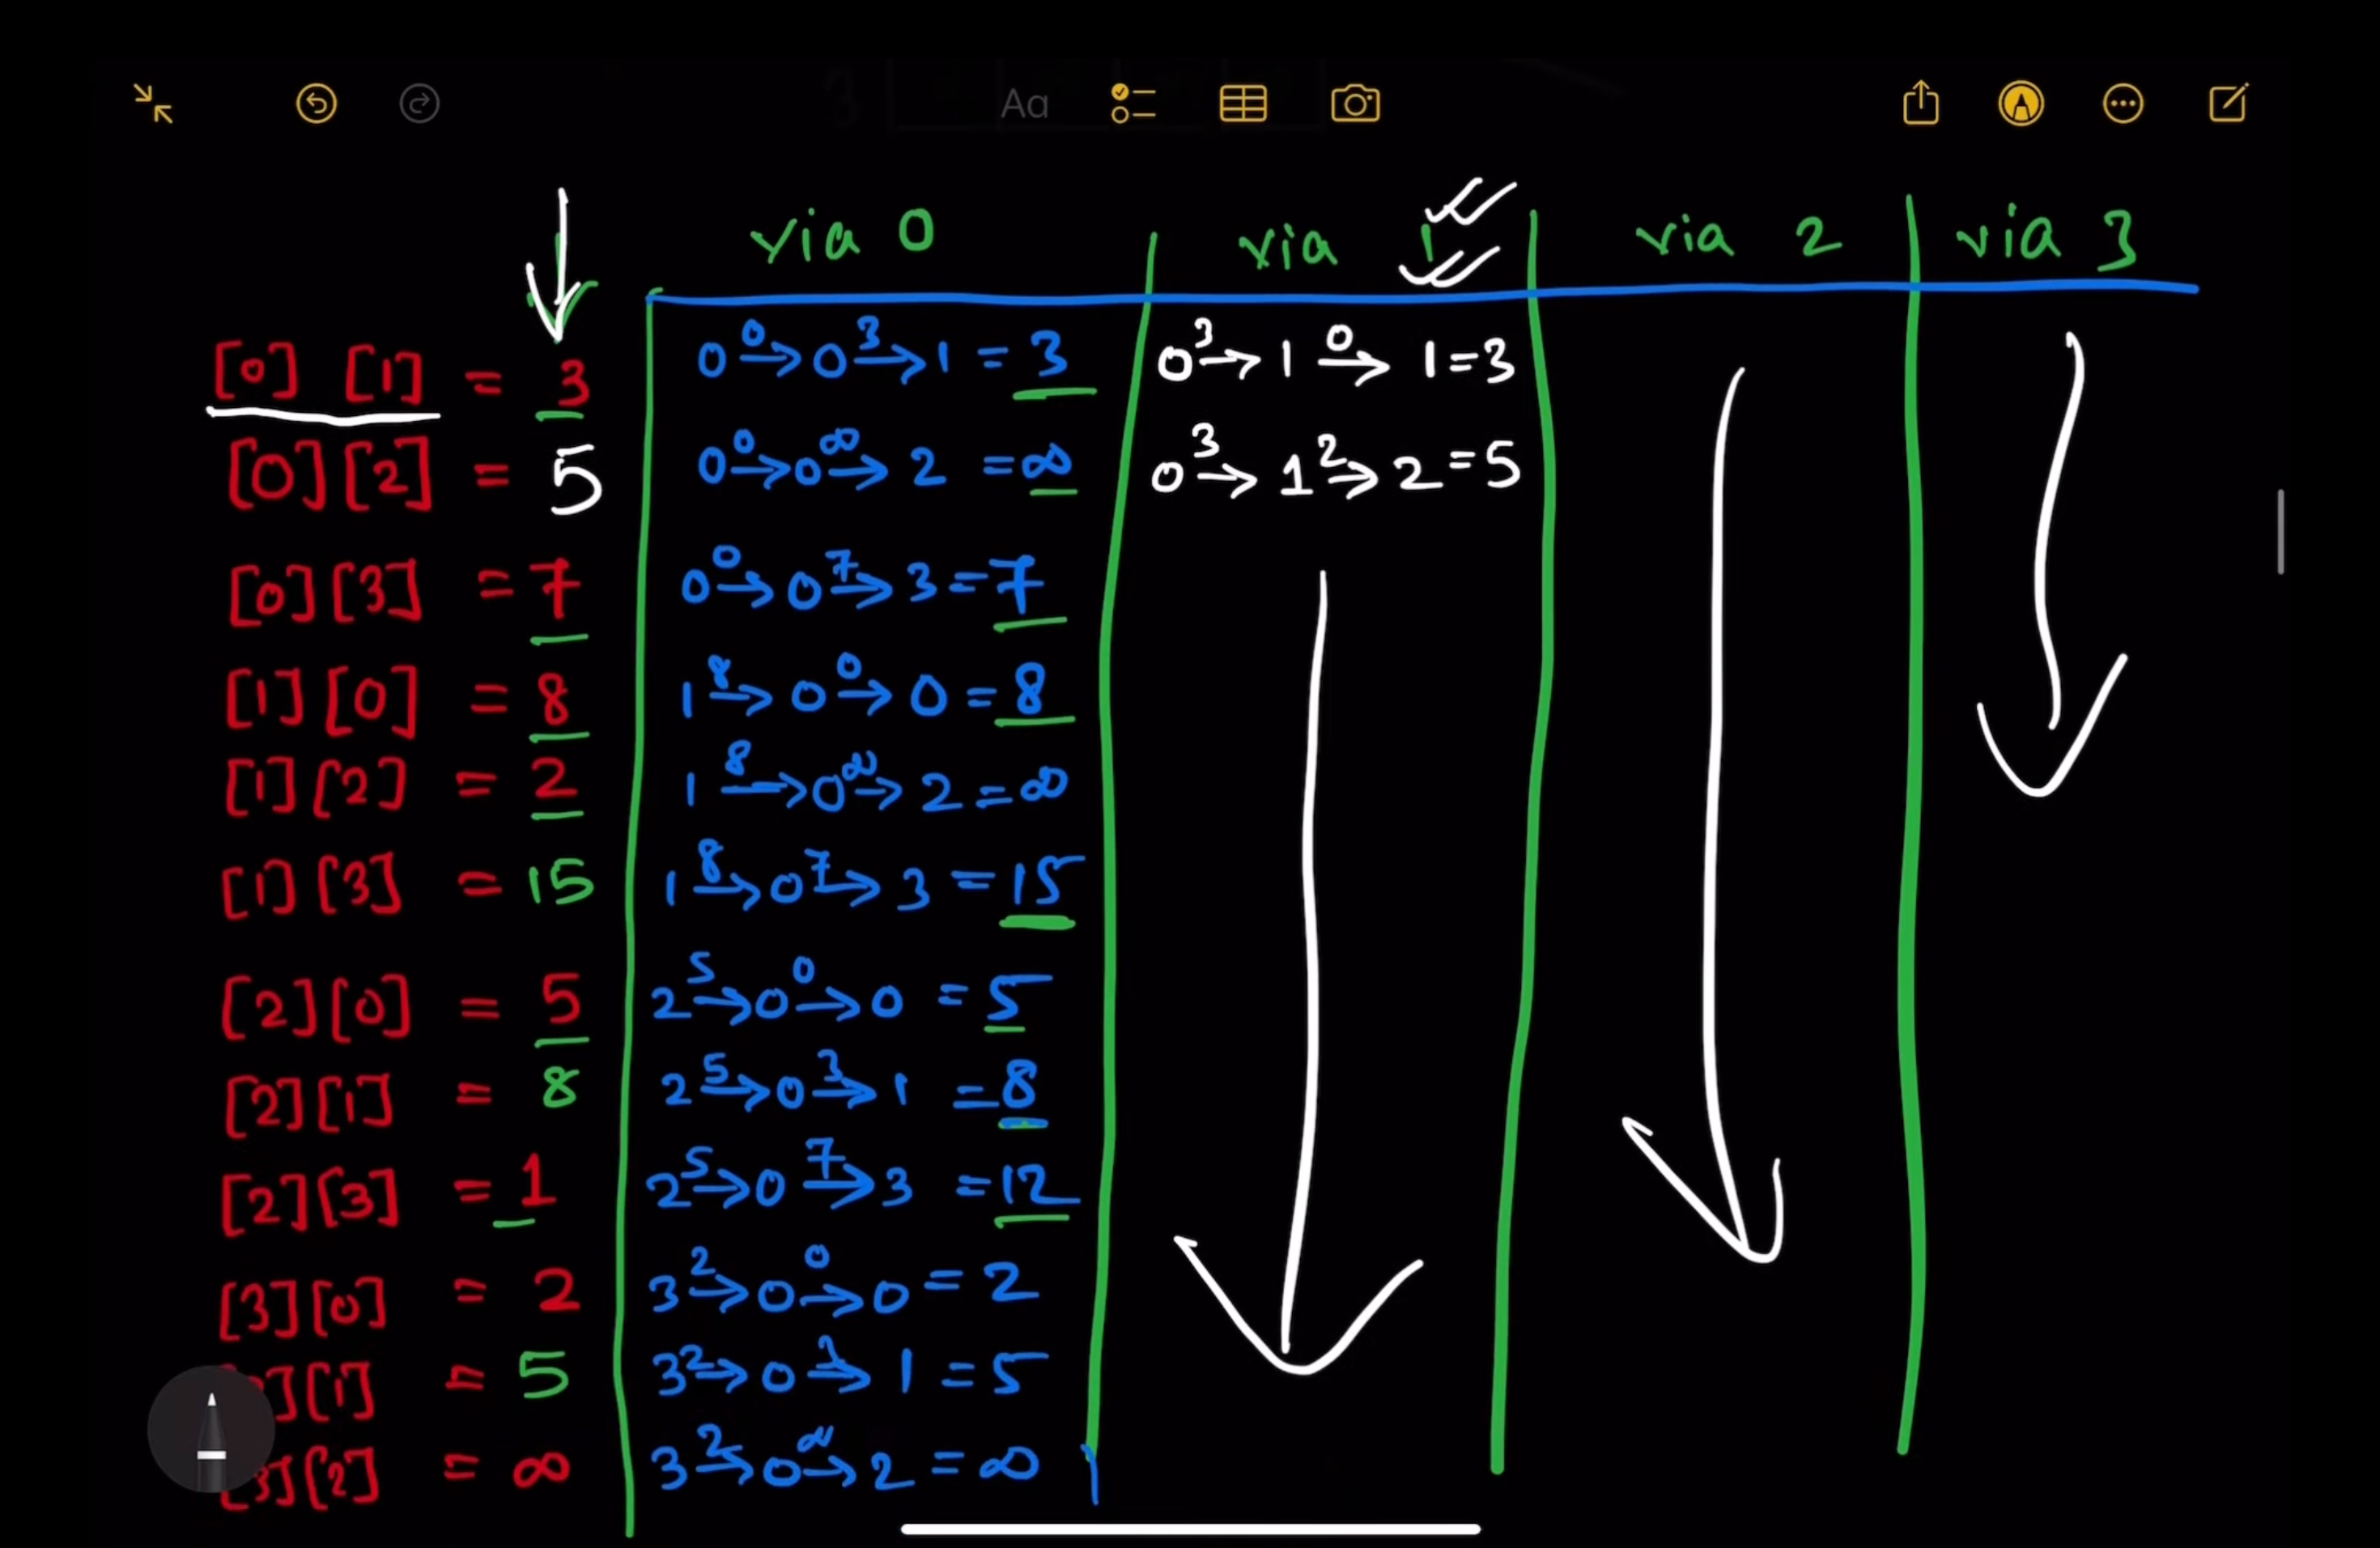 Aa
via 0 via 1 via 2 via 3
[0] [1] = 3 0 →0 0 →3 1 = 3 0 →3 1 →0 1 = 3
[0][2] = 5 0 →0 0 →∞ 2 = ∞ 0 →3 1 →2 2 = 5
[0][3] = 7 0 →0 0 →7 3 = 7
[1][0] = 8 1 →8 0 →0 0 = 8
[1][2] = 2 1 →8 0 →∞ 2 = ∞
[1][3] = 15 1 →8 0 →7 3 = 15
[2][0] = 5 2 →5 0 →0 0 = 5
[2][1] = 8 2 →5 0 →3 1 = 8
[2][3] = 1 2 →5 0 →7 3 = 12
[3][0] = 2 3 →2 0 →0 0 = 2
][1] = 5 3 →2 0 → 1 = 5
[3][2] = ∞ 3 →2 0 →∞ 2 = ∞